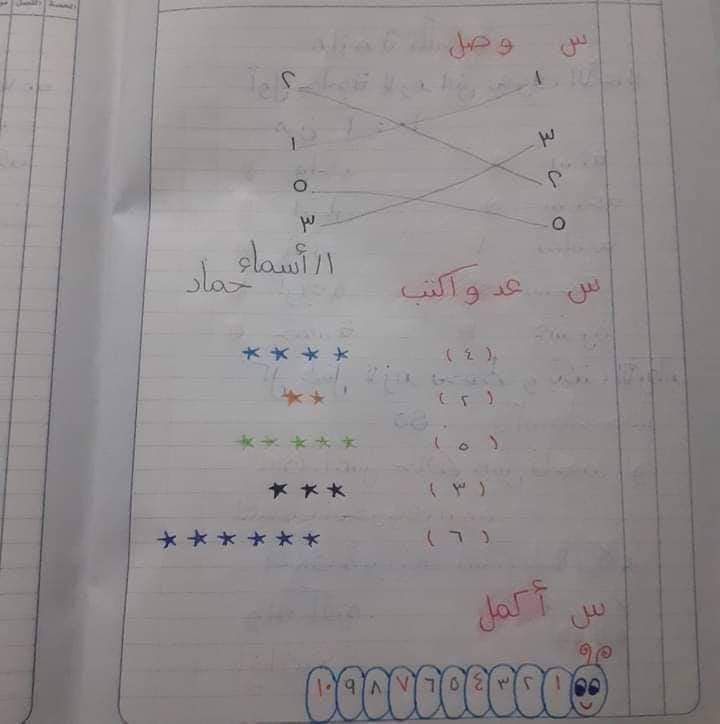 س وصل
١ ٢
٣ ١
٢ ٥
٥ ٣
ا/ أسماء حماد
س عد واكتب
(٤) ★★★★
(٢) ★★
(٥) ★★★★★
(٣) ★★★
(٦) ★★★★★★
س أكمل
١ ٢ ٣ ٤ ٥ ٦ ٧ ٨ ٩ ١٠